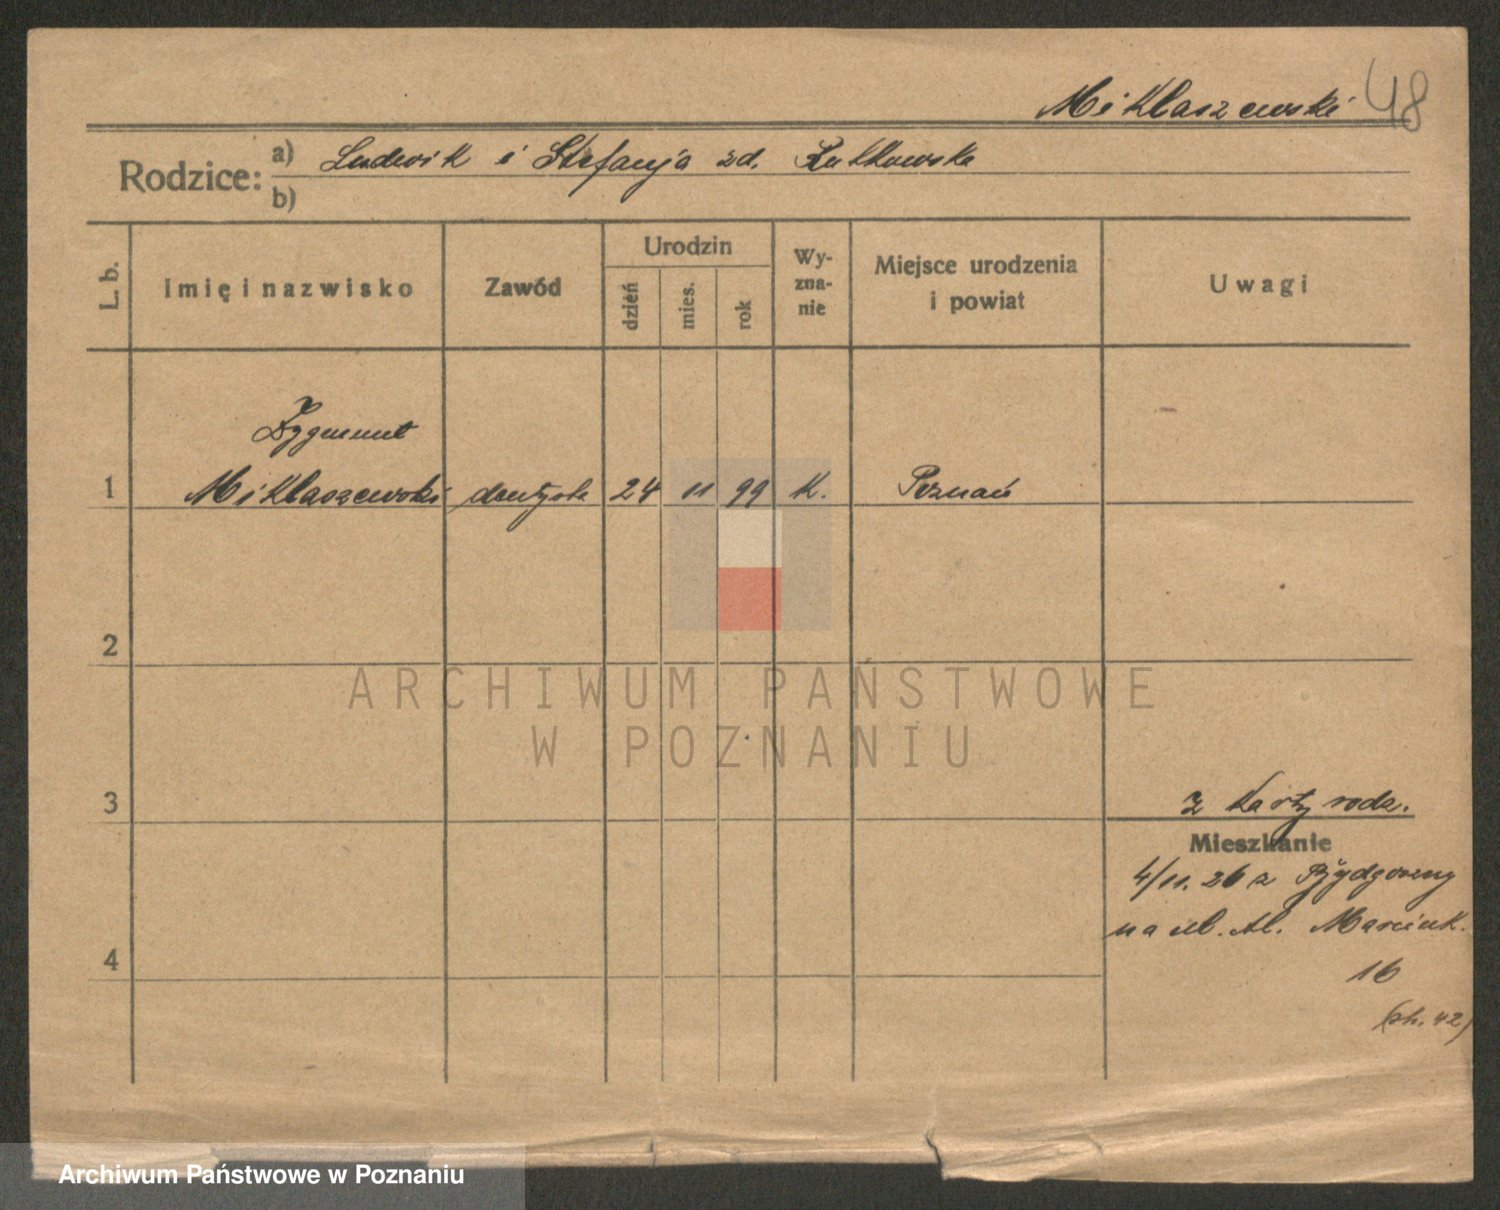 Miklaszewski 48
Rodzice: a) Ludwik i Stefanja zd. Rutkowska
b)
L. b.
Imię i nazwisko
Zawód
Urodzin
dzień
mies.
rok
Wy-
zna-
nie
Miejsce urodzenia
i powiat
Uwagi
Zygmunt
1 Miklaszewski dentysta 24 11 99 K. Poznań
2
ARCHIWUM PAŃSTWOWE
W POZNANIU
3
z Karty rodz.
Mieszkanie
4/11. 26 z Bydgoszczy
na ul. Al. Marcink.
16
4
Archiwum Państwowe w Poznaniu